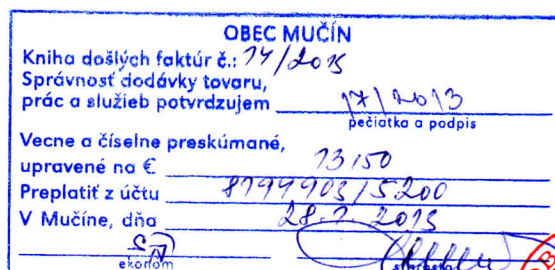 OBEC MUČÍN
Kniha došlých faktúr č.: 14/2013
Správnosť dodávky tovaru,
prác a služieb potvrdzujem 17/2013
pečiatka a podpis
Vecne a číselne preskúmané,
upravené na € 13,50
Preplatiť z účtu 8199903/5200
V Mučíne, dňa 28.1.2013
ekonóm